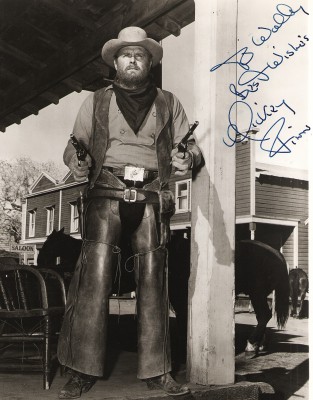 To Wally
Best Wishes
Mickey
SALOON